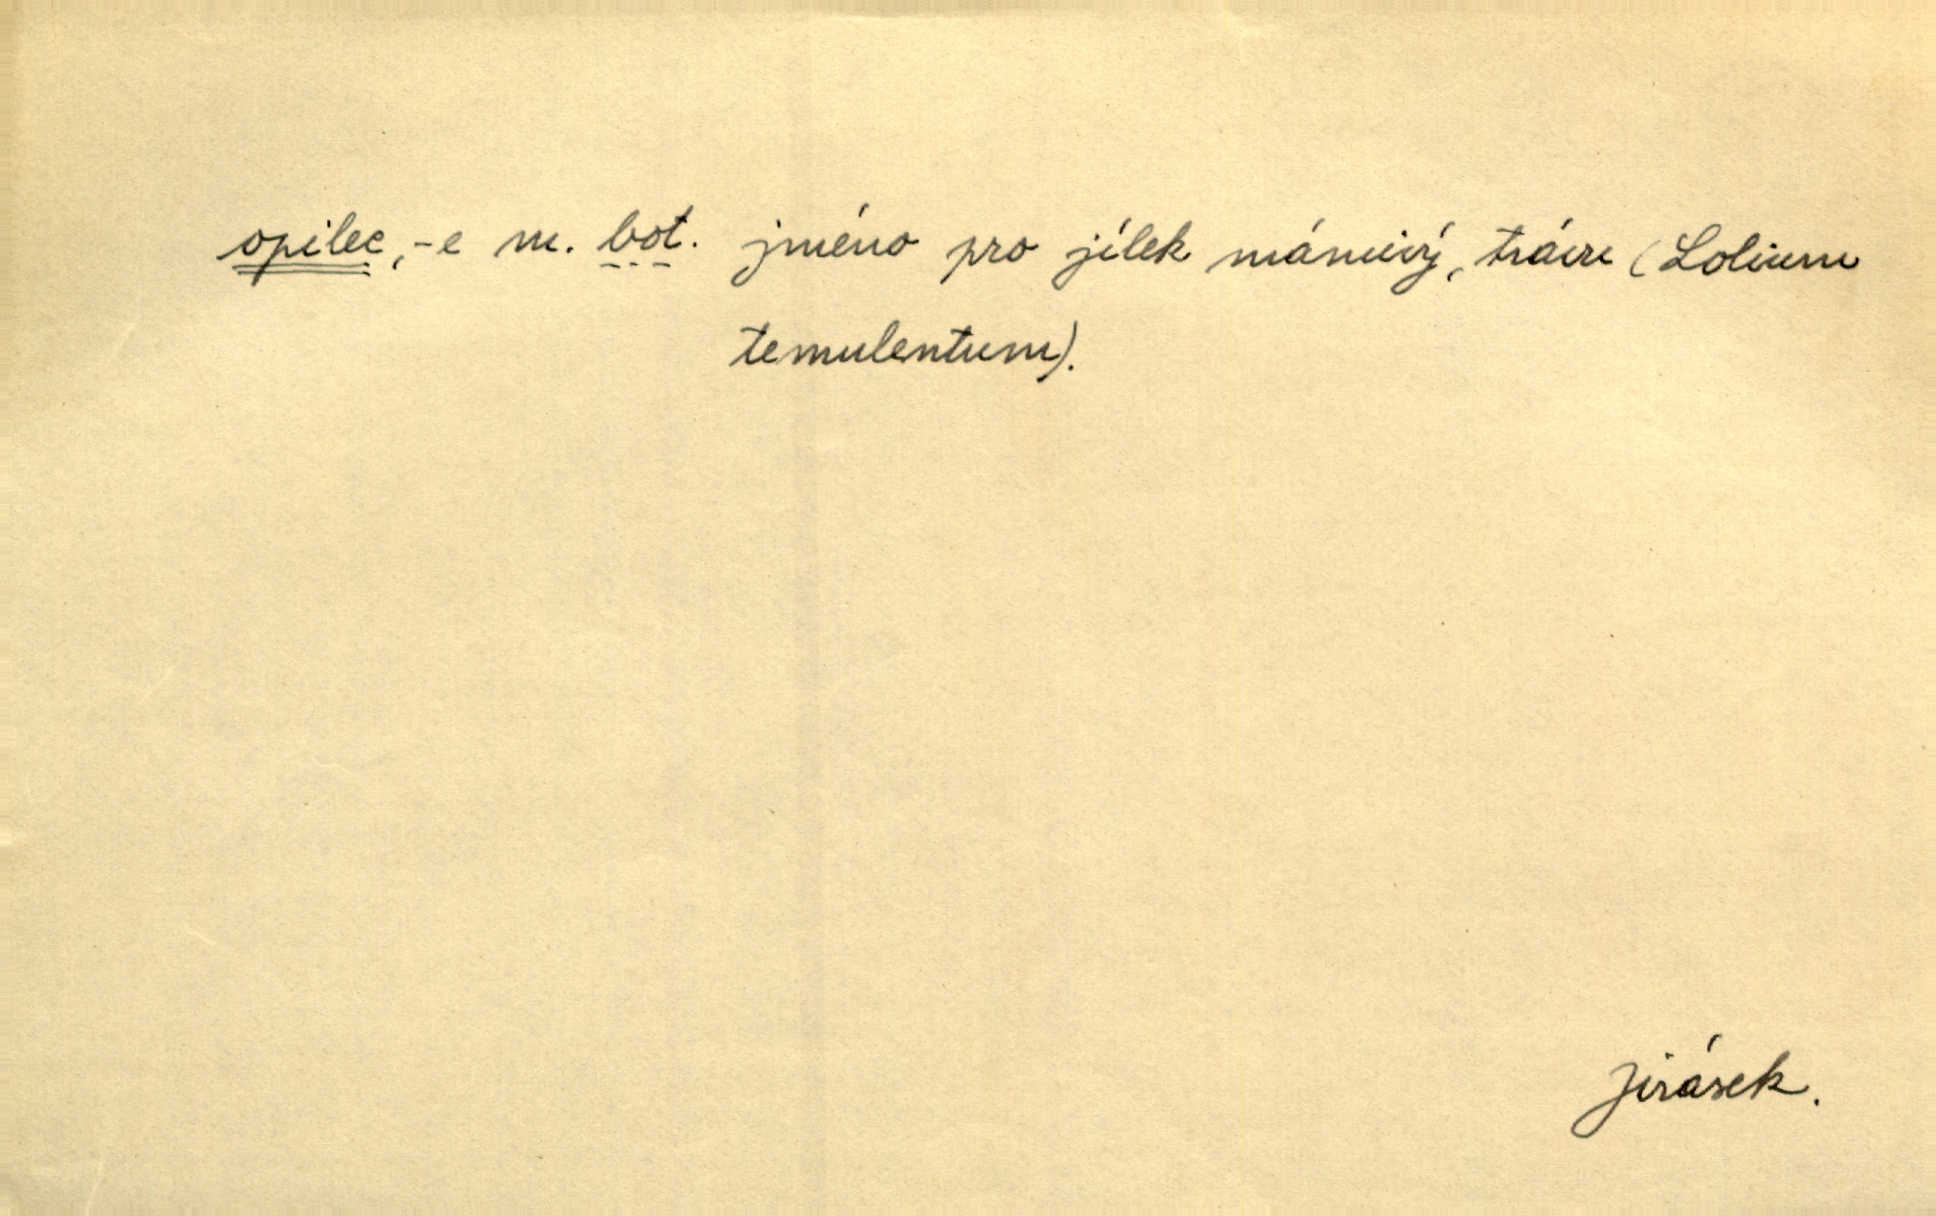 opilec, -e m. bot. jméno pro jílek mámivý, tráva (Lolium
temulentum).
Jirásek.